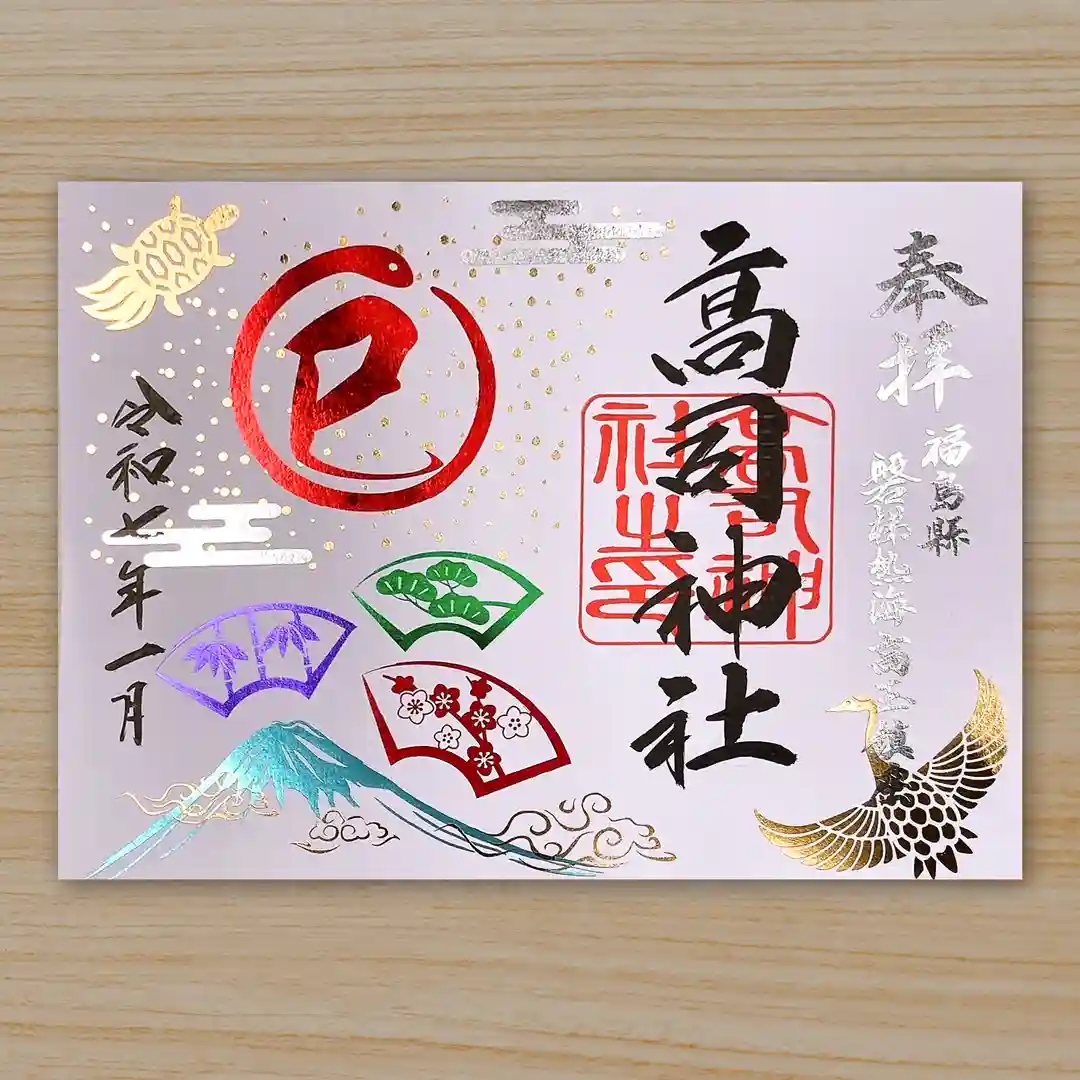 奉拝
福島縣
磐梯熱海高玉鎮
髙司神社
高司神
社之印
巳
令和七年一月